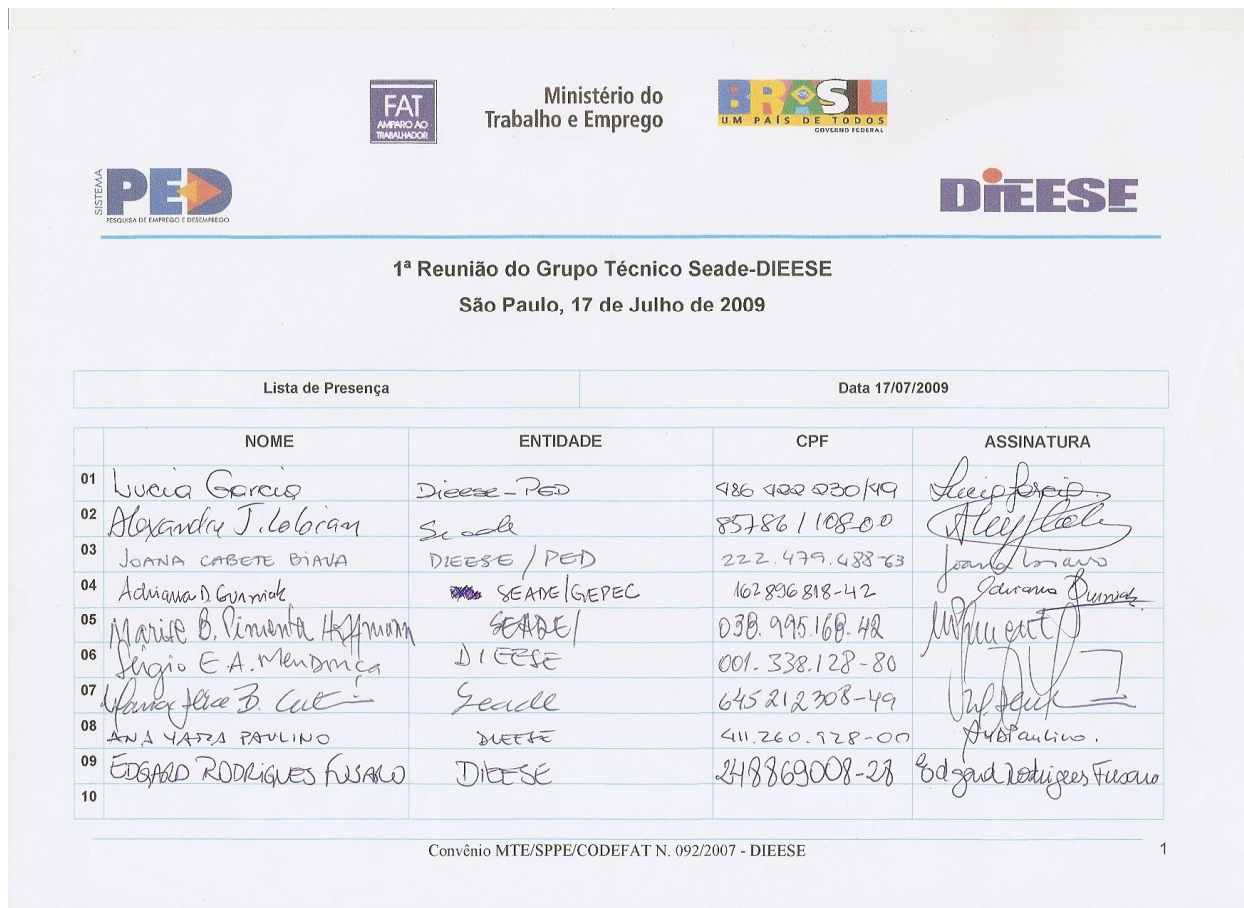 FAT
AMPARO AO
TRABALHADOR
Ministério do
Trabalho e Emprego
BRASIL
UM PAÍS DE TODOS
GOVERNO FEDERAL
SISTEMA
PED
PESQUISA DE EMPREGO E DESEMPREGO
DIEESE
1ª Reunião do Grupo Técnico Seade-DIEESE
São Paulo, 17 de Julho de 2009
Lista de Presença Data 17/07/2009
NOME ENTIDADE CPF ASSINATURA
01 Lucia Garcia Dieese-PED
02 Alexandre J. Seade 85786/108-00
03 JOANA CABETE BIAVA DIEESE/PED 222.479.488-63
04 Adriana D SEADE/GEPEC 162896818-42 Adriana
05 Marise B. Pimenta Hoffmann SEADE/ 038.995.168-42
06 Sérgio E. A. Mendonça DIEESE 001.338.128-80
07 B. Seade 645212308-49
08 ANA YARA PAULINO DIEESE 411.260.928-00
09 EDGARD RODRIGUES FUSARO DIEESE 248869008-28 Edgard Rodrigues Fusaro
10
Convênio MTE/SPPE/CODEFAT N. 092/2007 - DIEESE 1